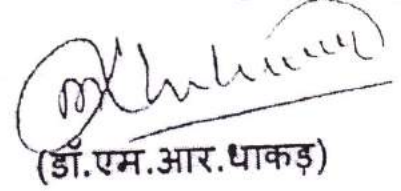 (डॉ.एम.आर.धाकड़)